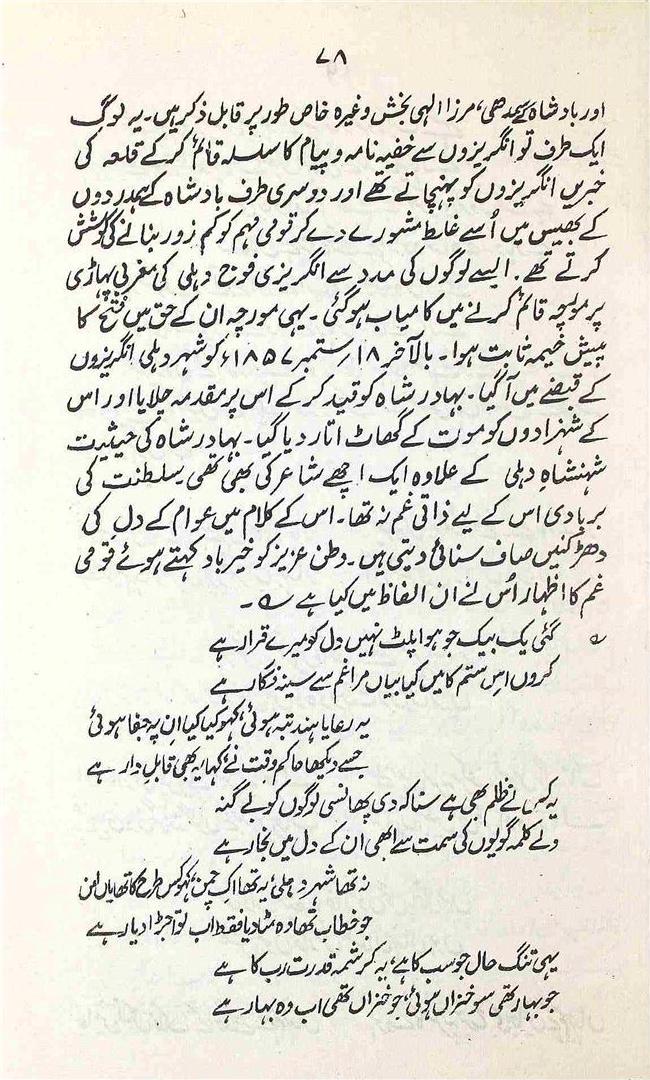 ۷۸
اور بادشاہ کے سمدھی، مرزا الٰہی بخش وغیرہ خاص طور پر قابل ذکر ہیں۔ یہ لوگ
ایک طرف تو انگریزوں سے خفیہ نامہ و پیام کا سلسلہ قائم کر کے قلعہ کی
خبریں انگریزوں کو پہنچاتے تھے اور دوسری طرف بادشاہ کے ہمدردوں
کے بھیس میں اُسے غلط مشورے دے کر قومی مہم کو کم زور بنانے کی کوشش
کرتے تھے۔ ایسے لوگوں کی مدد سے انگریزی فوج دہلی کی مغربی پہاڑی
پر مورچہ قائم کرنے میں کامیاب ہوگئی۔ یہی مورچہ ان کے حق میں فتح کا
پیش خیمہ ثابت ہوا۔ بالآخر ۱۸؍ستمبر ۱۸۵۷ء کو شہر دہلی انگریزوں
کے قبضے میں آگیا۔ بہادر شاہ کو قید کر کے اس پر مقدمہ چلایا اور اس
کے شہزادوں کو موت کے گھاٹ اتار دیا گیا۔ بہادر شاہ کی حیثیت
شہنشاہِ دہلی کے علاوہ ایک اچھے شاعر کی بھی تھی۔ سلطنت کی
بربادی اس کے لیے ذاتی غم نہ تھا۔ اس کے کلام میں عوام کے دل کی
دھڑکنیں صاف سنائی دیتی ہیں۔ وطن عزیز کو خیر باد کہتے ہوئے قومی
غم کا اظہار اُس نے ان الفاظ میں کیا ہے ؎۔
؎ گئی یک بیک جو ہوا پلٹ نہیں دل کو میرے قرار ہے
کروں اس ستم کا میں کیا بیاں مرا غم سے سینہ فگار ہے
یہ رعایا ہند تبہ ہوئی، کہو کیا کیا ان پہ جفا ہوئی
جسے دیکھا حاکم وقت نے کہا، یہ بھی قابلِ دار ہے
یہ کسی نے ظلم بھی ہے سنا کہ دی پھانسی لوگوں کو بے گنہ
ولے کلمہ گویوں کی سمت سے ابھی ان کے دل میں بخار ہے
نہ تھا شہر دہلی، یہ تھا اک چمن، کہو کس طرح کا تھا یاں امن
جو خطاب تھا وہ مٹا دیا فقط اب تو اجڑا دیار ہے
یہی تنگ حال جو سب کا ہے، یہ کرشمہ قدرت رب کا ہے
جو بہار تھی سو خزاں ہوئی، جو خزاں تھی اب وہ بہار ہے